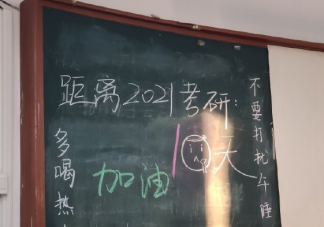 距离2021考研:
10天
加油
多喝热
不要打扰午睡